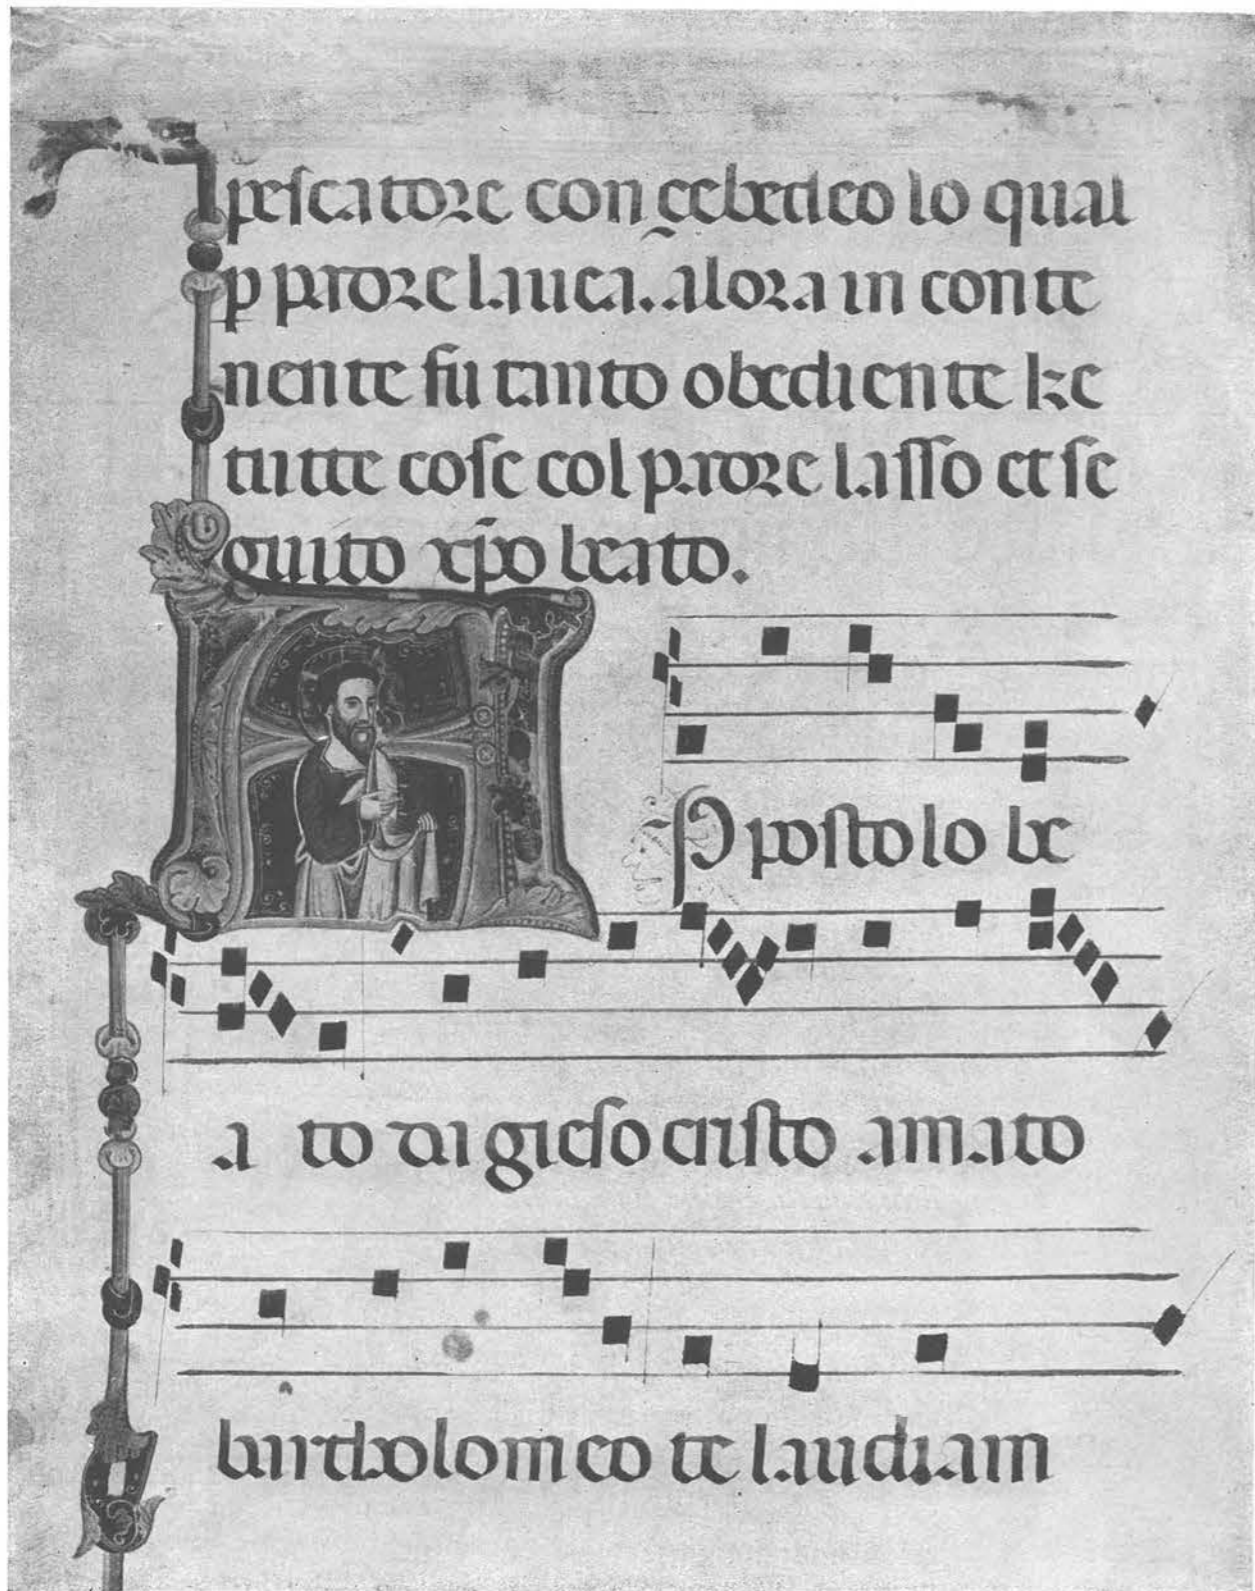 pescatore con çebedeo lo qual
p patore laueа. alora in conte
nente fu tanto obediente ke
tutte cose col patore lasso et se
guito xp̄o beato.
A postolo be
a to di gieso cristo amato
bartholomeo te laudiam